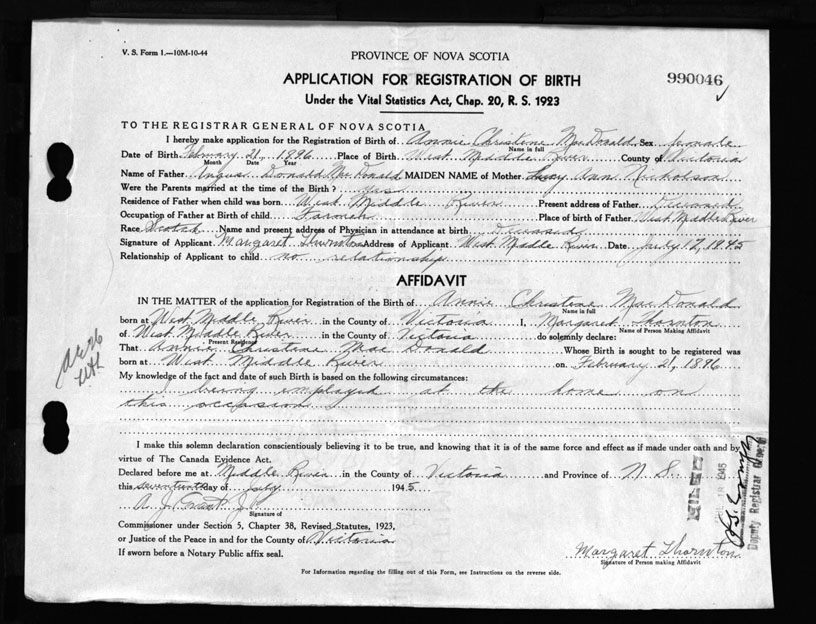 V. S. Form 1.—10M-10-44
PROVINCE OF NOVA SCOTIA
APPLICATION FOR REGISTRATION OF BIRTH
990046
Under the Vital Statistics Act, Chap. 20, R. S. 1923
TO THE REGISTRAR GENERAL OF NOVA SCOTIA
I hereby make application for the Registration of Birth of Annie Christene MacDonald Sex female
Name in full
Date of Birth February 21, 1896 Place of Birth West Middle River County of Victoria
Month Date Year
Name of Father Angus Donald MacDonald MAIDEN NAME of Mother Ann Nicholson
Were the Parents married at the time of the Birth? yes
Residence of Father when child was born West Middle River Present address of Father Deceased
Occupation of Father at Birth of child Farmer Place of birth of Father West Middle River
Race Scotch Name and present address of Physician in attendance at birth Deceased
Signature of Applicant Margaret Thornton Address of Applicant West Middle River Date July 17, 1945
Relationship of Applicant to child no relationship
AFFIDAVIT
IN THE MATTER of the application for Registration of the Birth of Annie Christene MacDonald
Name in full
born at West Middle River in the County of Victoria I, Margaret Thornton
Name of Person Making Affidavit
of West Middle River in the County of Victoria do solemnly declare:
Present Residence
That Annie Christene MacDonald Whose Birth is sought to be registered was
born at West Middle River on February 21, 1896
My knowledge of the fact and date of such Birth is based on the following circumstances:
I being employed at the home on
this occasion
I make this solemn declaration conscientiously believing it to be true, and knowing that it is of the same force and effect as if made under oath and by
virtue of The Canada Evidence Act.
Declared before me at Middle River in the County of Victoria and Province of N S
this seventeenth day of July 1945
A. J. Grant J.P.
Signature of
Commissioner under Section 5, Chapter 38, Revised Statutes, 1923,
or Justice of the Peace in and for the County of Victoria
If sworn before a Notary Public affix seal.
Margaret Thornton
Signature of Person making Affidavit
For Information regarding the filling out of this Form, see Instructions on the reverse side.
Deputy Registrar General